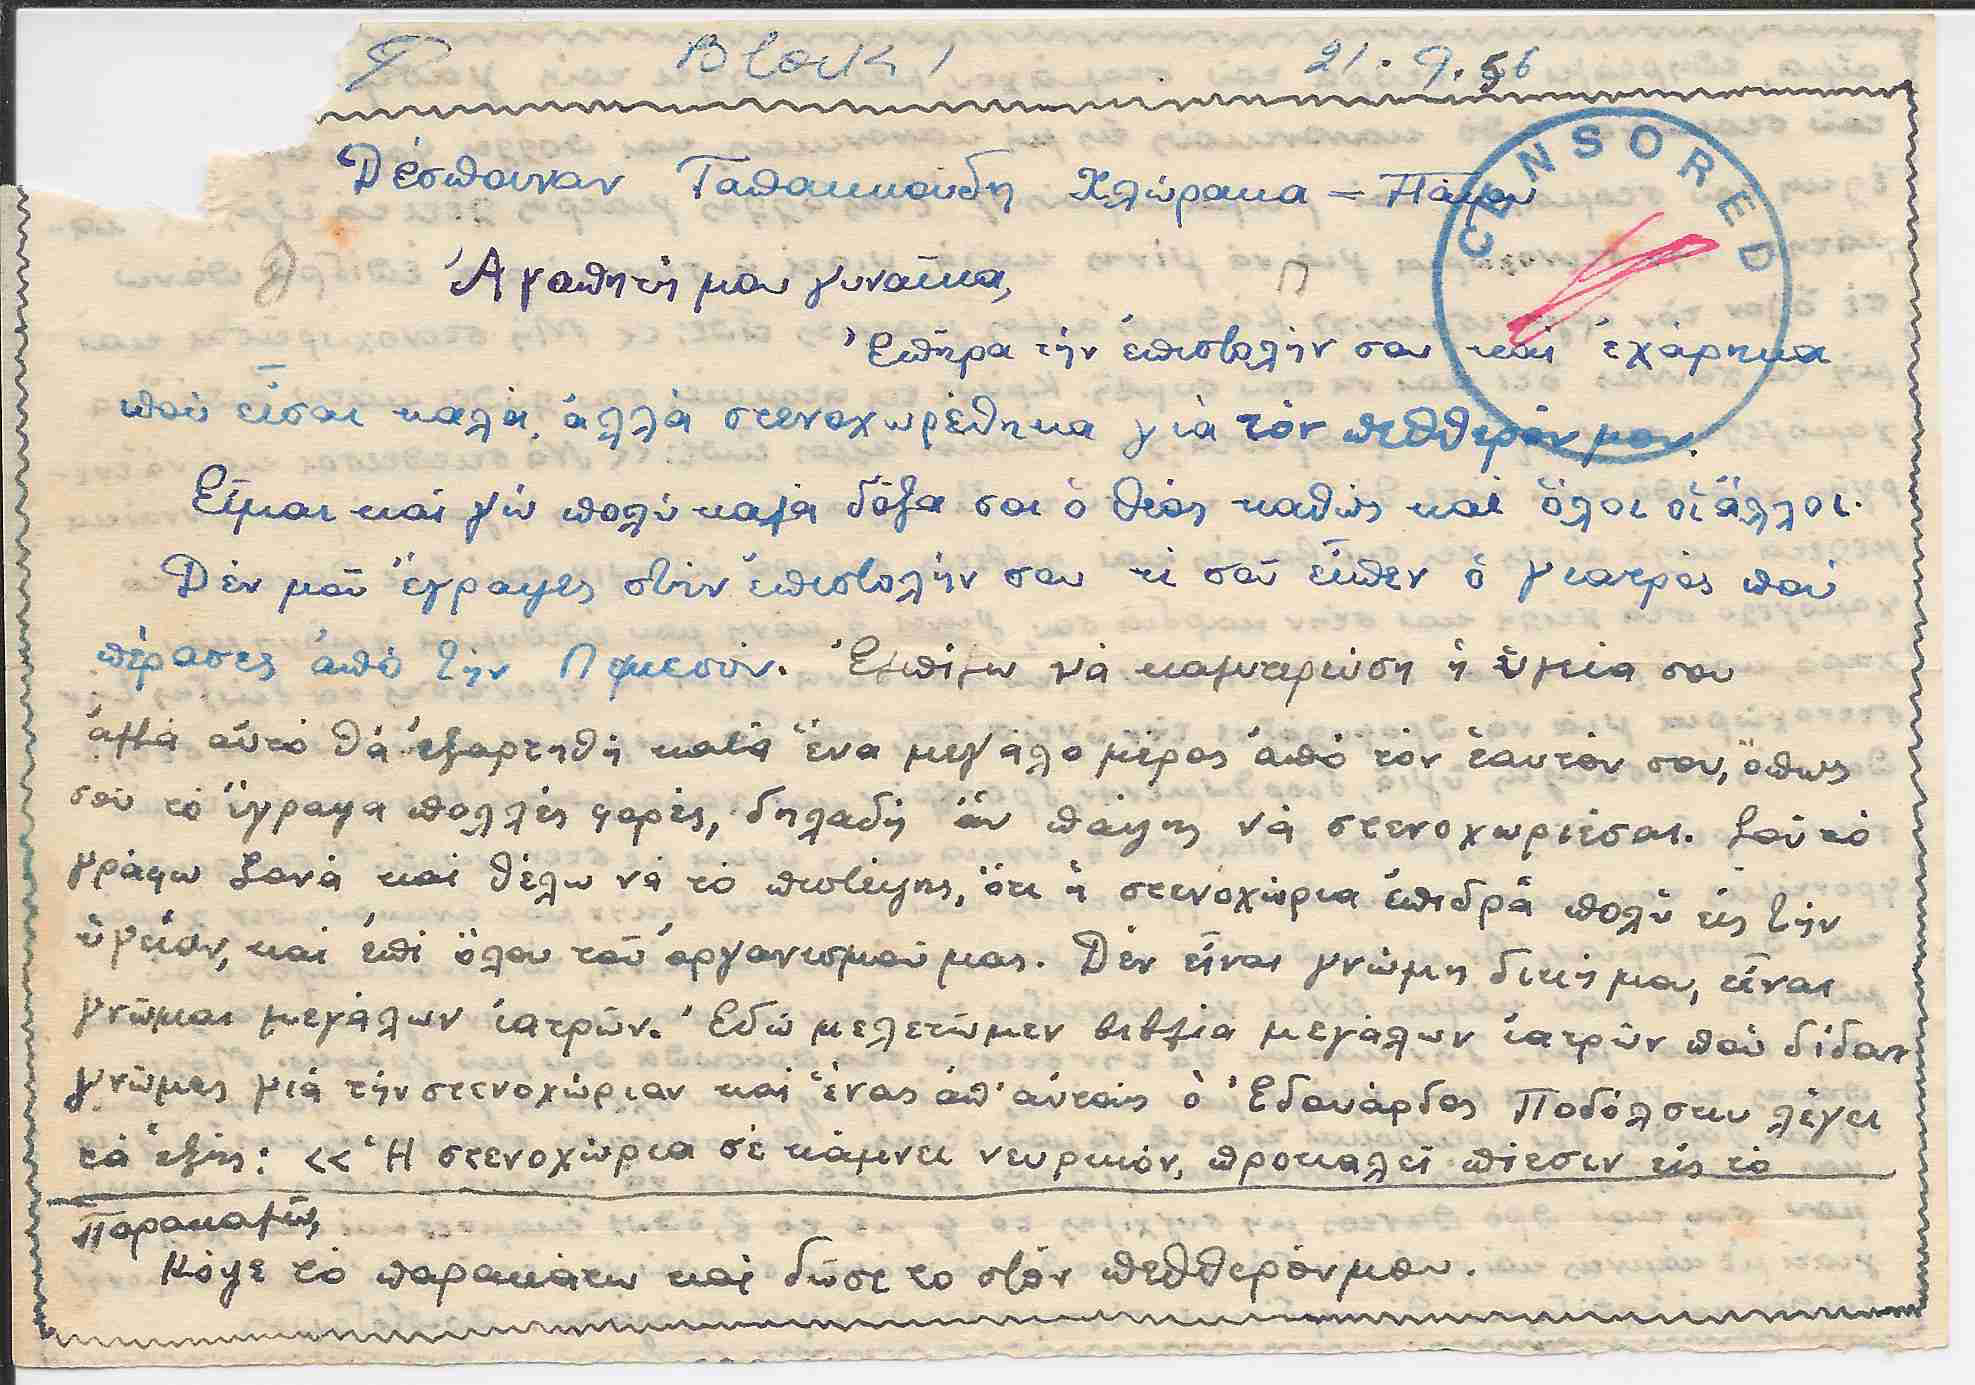 Block 1 21.9.56
CENSORED
Δέσποιναν Ταπακκούδη Χλώρακα = Πάφου
Ἀγαπητή μου γυναῖκα,
Ἐπῆρα τήν ἐπιστολήν σου καί ἐχάρηκα
πού εἶσαι καλά, ἀλλά στενοχωρέθηκα γιά τόν πεθθερόν μου.
Εἶμαι καί γώ πολύ καλά δόξα σοι ὁ θεός καθώς καί ὅλοι οἱ ἄλλοι.
Δέν μοῦ ἔγραψες στήν ἐπιστολήν σου τί σοῦ εἶπεν ὁ γιατρός πού
πέρασες ἀπό τήν Λεμεσόν. Ἐλπίζω νά καλυτερεύση ἡ ὑγεία σου
ἀλλά αὐτό θά ἐξαρτηθῆ κατά ἕνα μεγάλο μέρος ἀπό τόν ἑαυτόν σου, ὅπως
σοῦ τό ἔγραψα πολλές φορές, δηλαδή ἄν πάψης νά στενοχωριέσαι. Σοῦ τό
γράφω ξανά καί θέλω νά τό πιστέψης, ὅτι ἡ στενοχώρια ἐπιδρᾶ πολύ εἰς τήν
ὑγείαν, καί ἐπί ὅλου τοῦ ὀργανισμοῦ μας. Δέν εἶναι γνώμη δική μου, εἶναι
γνῶμαι μεγάλων ἰατρῶν. Ἐδῶ μελετῶμεν βιβλία μεγάλων ἰατρῶν πού δίδουν
γνῶμες γιά τήν στενοχώριαν καί ἕνας ἀπ' αὐτούς ὁ Ἐδουάρδος Ποδόλσκυ λέγει
τά ἑξῆς: << Ἡ στενοχώρια σέ κάμνει νευρικόν, προκαλεῖ πίεσιν εἰς τό
Παρακαλῶ,
Κόψε τό παρακάτω καί δῶσε το στόν πεθθερόν μου.